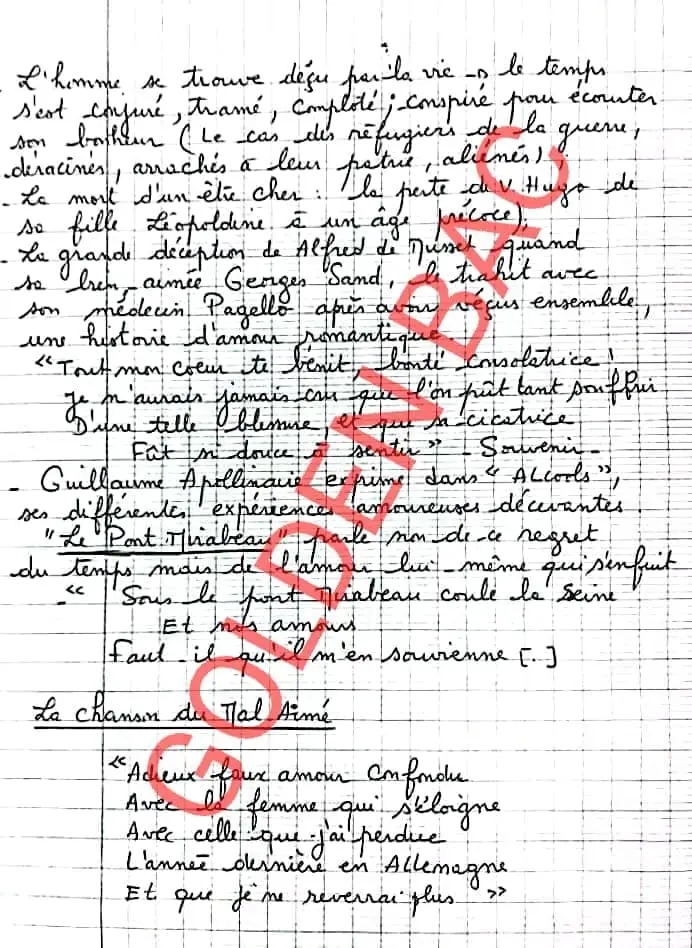 L'homme se trouve déçu par la vie → le temps
s'est conjuré, tramé, comploté ; conspiré pour écourter
son bonheur (Le cas des réfugiers de la guerre,
déracinés, arrachés à leur patrie, aliénés),
- La mort d'un être cher : la perte de V. Hugo de
sa fille Léopoldine à un âge précoce),
- La grande déception de Alfred de Musset quand
sa bien-aimée Georges Sand, le trahit avec
son médecin Pagello après avoir vécus ensemble,
une histoire d'amour romantique
"Tout mon coeur te bénit, bonté consolatrice !
Je n'aurais jamais cru que l'on pût tant souffrir
D'une telle blessure, et que sa cicatrice
Fût si douce à sentir" - Souvenir -
- Guillaume Apollinaire exprime dans "ALcools",
ses différentes expériences amoureuses décevantes.
"Le Pont Mirabeau" parle non de ce regret
du temps mais de l'amour lui-même qui s'enfuit
- "Sous le pont Mirabeau coule la Seine
Et nos amours
Faut-il qu'il m'en souvienne [..]
La chanson du Mal Aimé
"Adieux faux amour confondu
Avec la femme qui s'éloigne
Avec celle que j'ai perdue
L'année dernière en Allemagne
Et que je ne reverrai plus"
GOLDEN BAC